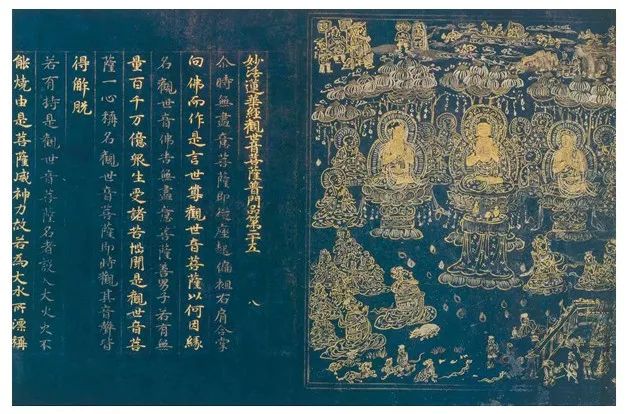 妙法蓮華經觀世音菩薩普門品第二十五　八
尒時無盡意菩薩即從座起偏袒右肩合掌
向佛而作是言世尊觀世音菩薩以何因緣
名觀世音佛告無盡意菩薩善男子若有無
量百千万億衆生受諸苦惱聞是觀世音菩
薩一心稱名觀世音菩薩即時觀其音聲皆
得解脫
若有持是觀世音菩薩名者設入大火火不
能燒由是菩薩威神力故若為大水所漂稱